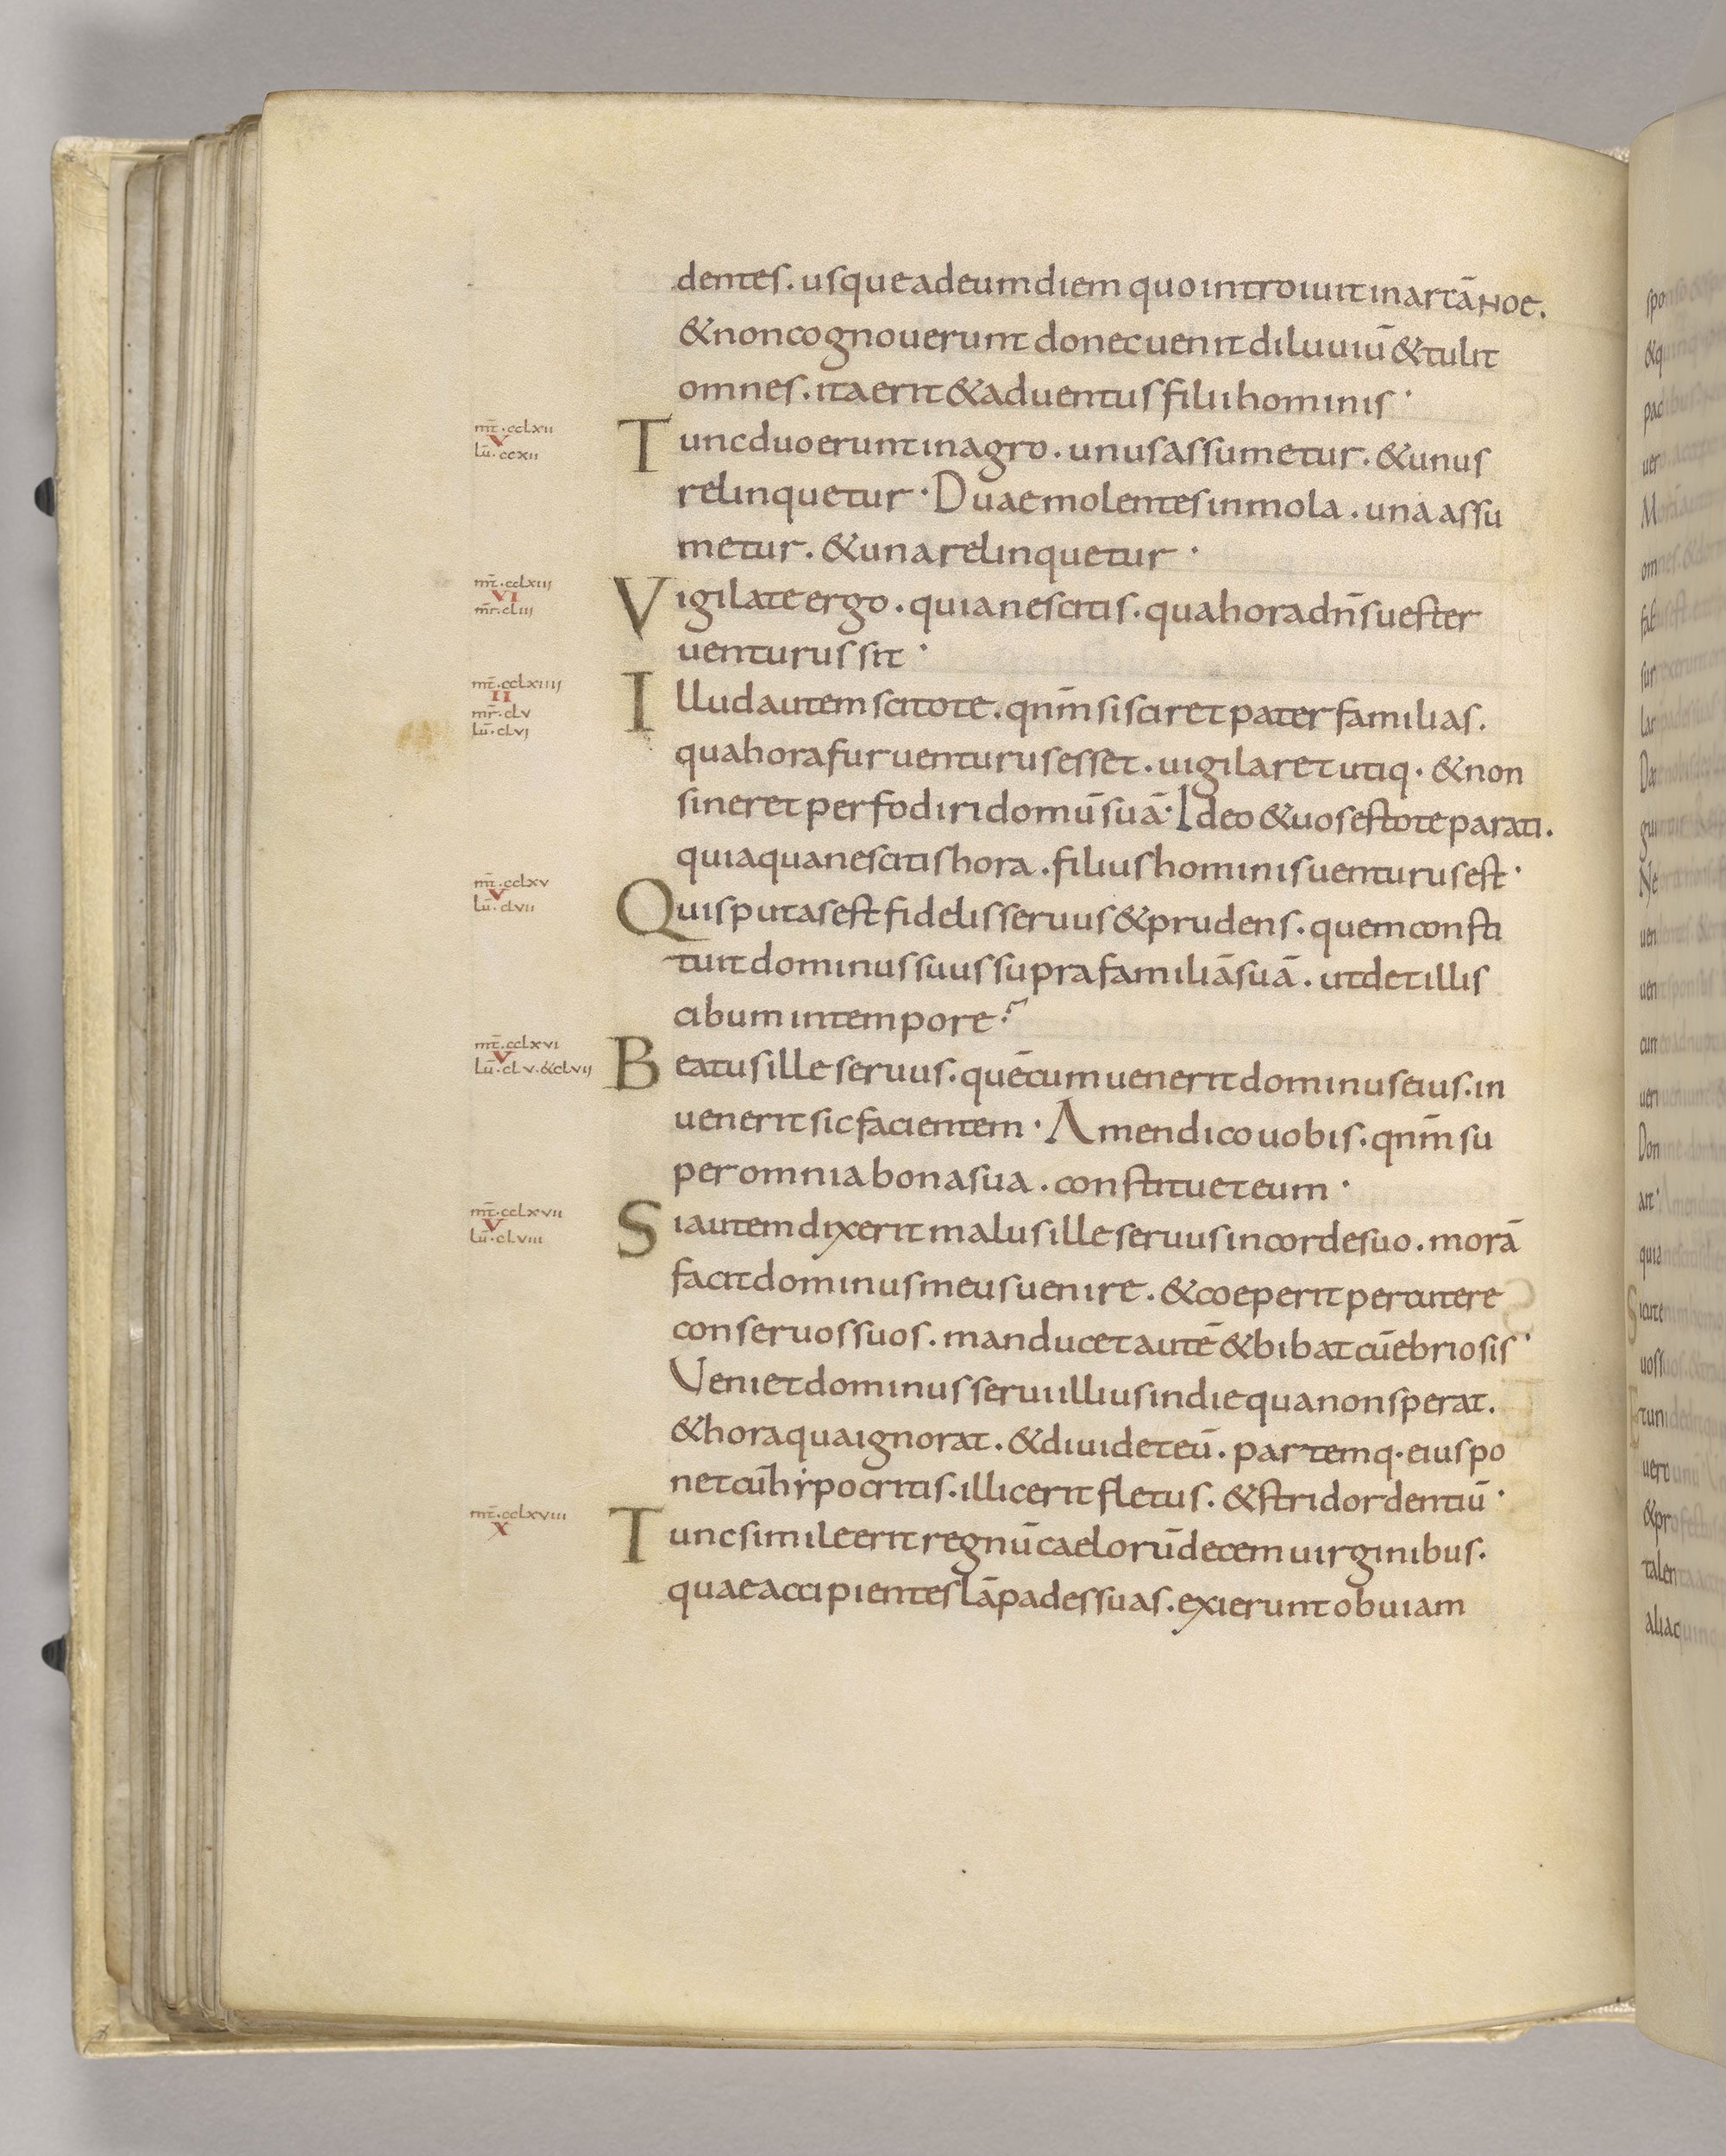 dentes. usque ad eum diem quo introiuit in arcā Noe.
& non cognouerunt donec uenit diluuiū & tulit
omnes. ita erit & aduentus filii hominis·
mt̄·cclxii
V
lū·ccxii
Tunc duo erunt in agro. unus assumetur. & unus
relinquetur· Duae molentes in mola. una assu
metur. & una relinquetur·
mt̄·cclxiii
VI
mr̄·cliii
Vigilate ergo. quia nescitis. qua hora dn̄s uester
uenturus sit·
mt̄·cclxiiii
II
mr̄·clv
lū·clvi
Illud autem scitote. qnm̄ si sciret pater familias.
qua hora fur uenturus esset. uigilaret utiq· & non
sineret perfodiri domū suā· Ideo & uos estote parati.
quia qua nescitis hora. filius hominis uenturus est·
mt̄·cclxv
V
lū·clvii
Quis putas est fidelis seruus & prudens. quem consti
tuit dominus suus supra familiā suā. ut det illis
cibum in tempore?
mt̄·cclxvi
V
lū·clv·&clvii
Beatus ille seruus. quēcum uenerit dominus eius. in
uenerit sic facientem· Amen dico uobis. qnm̄ su
per omnia bona sua. constituet eum·
mt̄·cclxvii
V
lū·clviii
Si autem dixerit malus ille seruus in corde suo. morā
facit dominus meus uenire. & coeperit percutere
conseruos suos. manducet autē & bibat cū ebriosis·
Veniet dominus serui illius in die qua non sperat.
& hora qua ignorat. & diuidet eū. partemq· eius po
net cū hypocritis. illic erit fletus. & stridor dentiū·
mt̄·cclxviii
X
Tunc simile erit regnū caelorū decem uirginibus.
quae accipientes lāpades suas. exierunt obuiam